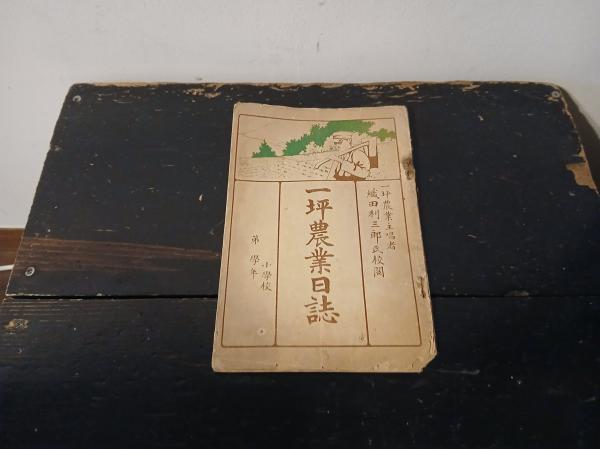 一坪農業主唱者
織田利三郎氏校閲
一坪農業日誌
小學校
第 學年